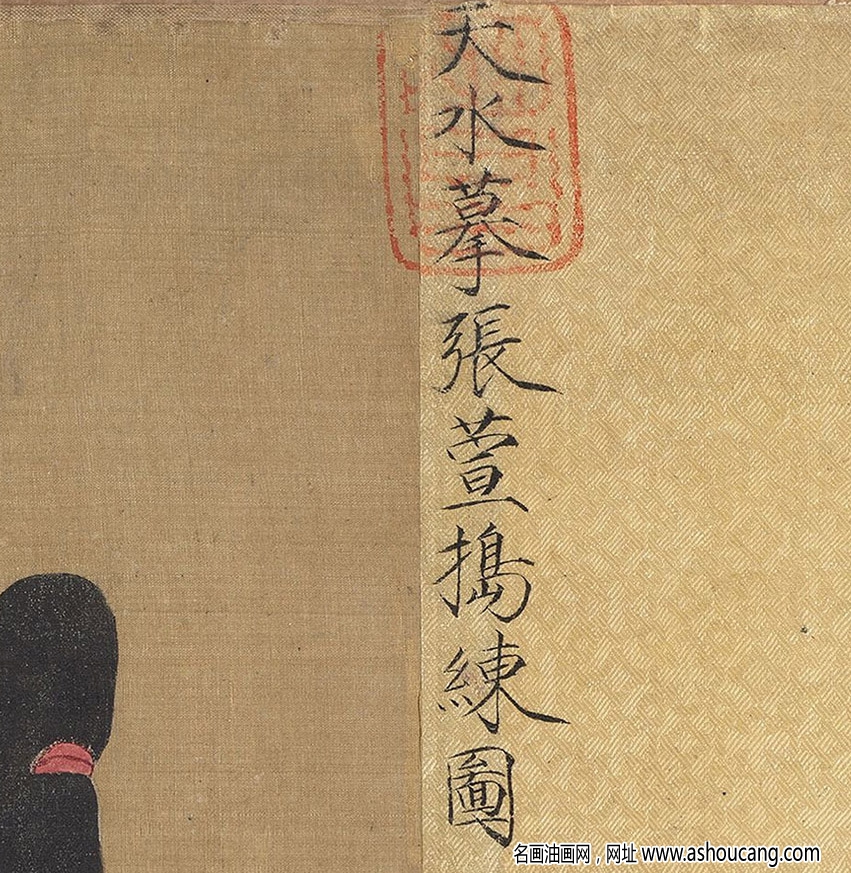 天水摹張萱搗練圖
名画油画网，网址 www.ashoucang.com